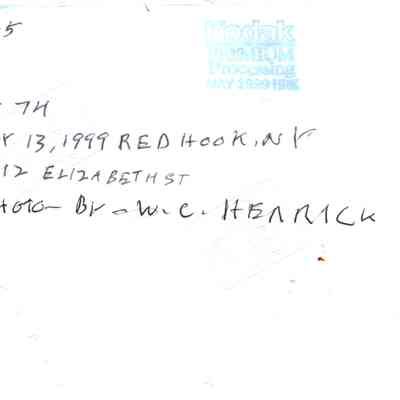 5
Kodak
Processing
MAY 1999
74
Y 13, 1999 RED HOOK, NY
12 ELIZABETH ST
HOTO- BY - W. C. HERRICK